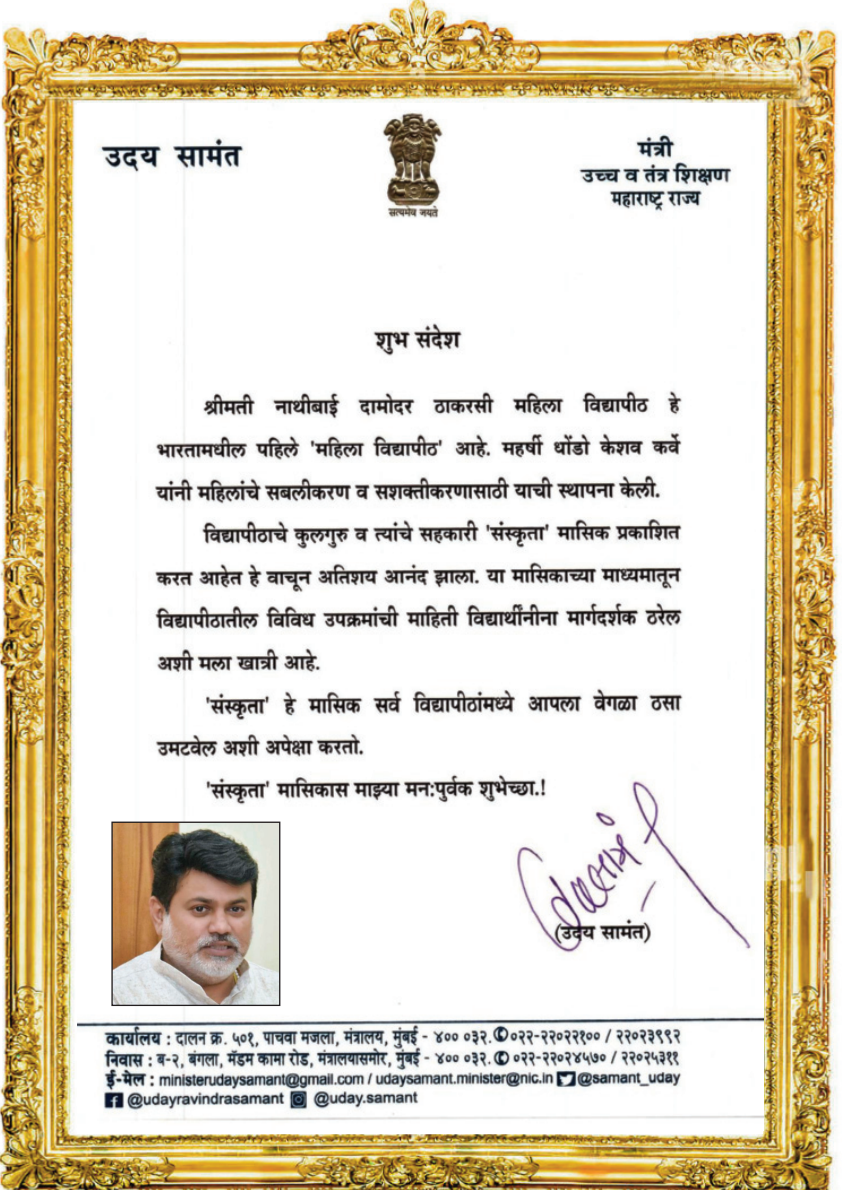 उदय सामंत
सत्यमेव जयते
मंत्री
उच्च व तंत्र शिक्षण
महाराष्ट्र राज्य
शुभ संदेश
श्रीमती नाथीबाई दामोदर ठाकरसी महिला विद्यापीठ हे
भारतामधील पहिले 'महिला विद्यापीठ' आहे. महर्षी धोंडो केशव कर्वे
यांनी महिलांचे सबलीकरण व सशक्तीकरणासाठी याची स्थापना केली.
विद्यापीठाचे कुलगुरु व त्यांचे सहकारी 'संस्कृता' मासिक प्रकाशित
करत आहेत हे वाचून अतिशय आनंद झाला. या मासिकाच्या माध्यमातून
विद्यापीठातील विविध उपक्रमांची माहिती विद्यार्थींनीना मार्गदर्शक ठरेल
अशी मला खात्री आहे.
'संस्कृता' हे मासिक सर्व विद्यापीठांमध्ये आपला वेगळा ठसा
उमटवेल अशी अपेक्षा करतो.
'संस्कृता' मासिकास माझ्या मन:पुर्वक शुभेच्छा.!
(उदय सामंत)
कार्यालय : दालन क्र. ५०१, पाचवा मजला, मंत्रालय, मुंबई - ४०० ०३२. ०२२-२२०२२१०० / २२०२३९९२
निवास : ब-२, बंगला, मॅडम कामा रोड, मंत्रालयासमोर, मुंबई - ४०० ०३२. ०२२-२२०२४५७० / २२०२५३११
ई-मेल : ministerudaysamant@gmail.com / udaysamant.minister@nic.in @samant_uday
@udayravindrasamant @uday.samant